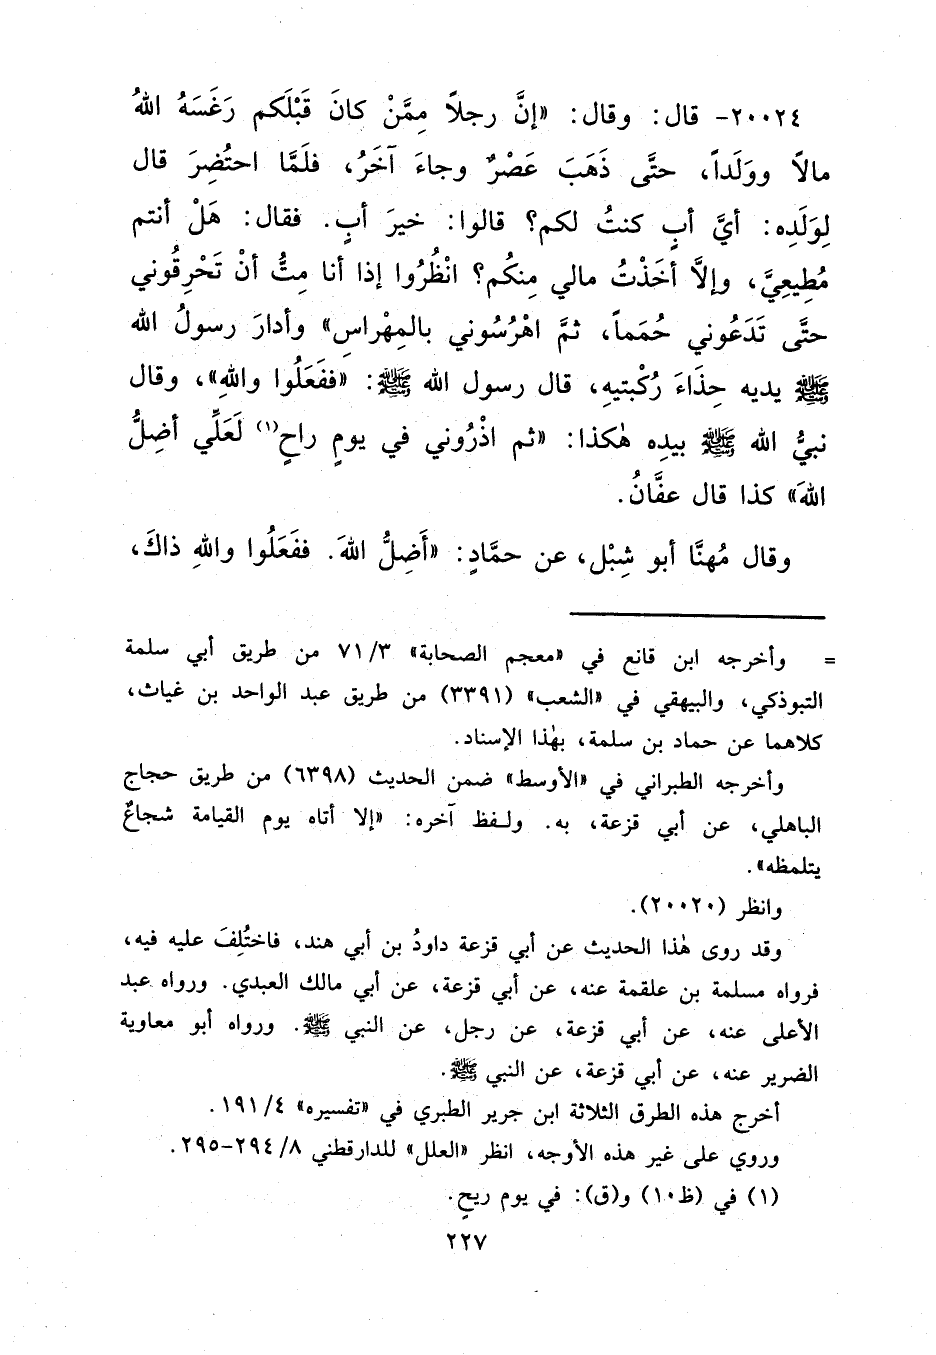 ٢٠٠٢٤- قال: وقال: «إنَّ رجلاً مِمَّنْ كانَ قَبْلَكم رَغَسَهُ اللهُ
مالاً ووَلَداً، حتَّى ذَهَبَ عَصْرٌ وجاءَ آخَرُ، فلَمَّا احتُضِرَ قال
لِوَلَدِه: أيَّ أبٍ كنتُ لكم؟ قالوا: خيرَ أبٍ. فقال: هَلْ أنتم
مُطِيعِيَّ، وإلاَّ أخَذْتُ مالي مِنكُم؟ انْظُرُوا إذا أنا مِتُّ أنْ تَحْرِقُوني
حتَّى تَدَعُوني حُمَماً، ثمَّ اهْرُسُوني بالمِهْراسِ» وأدارَ رسولُ الله
ﷺ يديه حِذَاءَ رُكْبتيهِ، قال رسول الله ﷺ: «ففَعَلُوا واللهِ»، وقال
نبيُّ الله ﷺ بيدِه هٰكذا: «ثم اذْرُوني في يومٍ راحٍ(١) لَعَلِّي أضِلُّ
اللهَ» كذا قال عفَّانُ.
وقال مُهنَّا أبو شِبْل، عن حمَّادٍ: «أَضِلُّ اللهَ. ففَعَلُوا واللهِ ذاكَ،
= وأخرجه ابن قانع في «معجم الصحابة» ٧١/٣ من طريق أبي سلمة
التبوذكي، والبيهقي في «الشعب» (٣٣٩١) من طريق عبد الواحد بن غياث،
كلاهما عن حماد بن سلمة، بهٰذا الإسناد.
وأخرجه الطبراني في «الأوسط» ضمن الحديث (٦٣٩٨) من طريق حجاج
الباهلي، عن أبي قزعة، به. ولـفظ آخره: «إلا أتاه يوم القيامة شجاعٌ
يتلمظه».
وانظر (٢٠٠٢٠).
وقد روى هٰذا الحديث عن أبي قزعة داودُ بن أبي هند، فاختُلِفَ عليه فيه،
فرواه مسلمة بن علقمة عنه، عن أبي قزعة، عن أبي مالك العبدي. ورواه عبد
الأعلى عنه، عن أبي قزعة، عن رجل، عن النبي ﷺ. ورواه أبو معاوية
الضرير عنه، عن أبي قزعة، عن النبي ﷺ.
أخرج هذه الطرق الثلاثة ابن جرير الطبري في «تفسيره» ١٩١/٤.
وروي على غير هذه الأوجه، انظر «العلل» للدارقطني ٨/ ٢٩٤-٢٩٥.
(١) في (ظ١٠) و(ق): في يوم ريحٍ.
٢٢٧